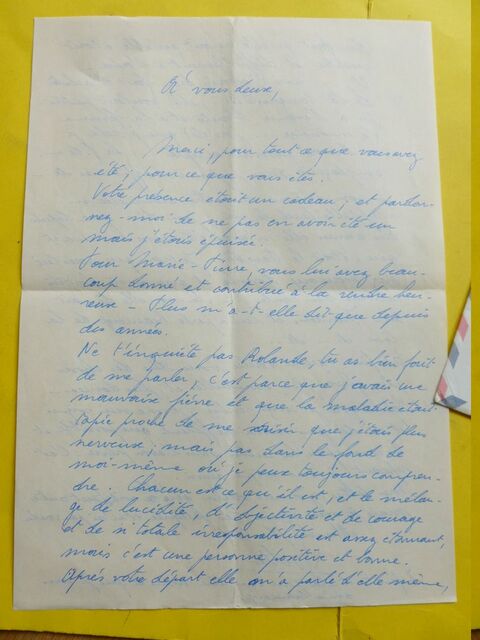 À vous deux,
Merci, pour tout ce que vous avez
été ; pour ce que vous êtes.
Votre présence était un cadeau ; et pardon-
nez-moi de ne pas en avoir été un
mais j'étais épuisée.
Pour Marie-Pierre, vous lui avez beau-
coup donné et contribué à la rendre heu-
reuse - Plus m'a-t-elle dit que depuis
des années.
Ne t'inquiète pas Rolande, tu as bien fait
de me parler, c'est parce que j'avais une
mauvaise fièvre et que la maladie était
proche de me saisir que j'étais plus
nerveuse ; mais pas dans le fond de
moi-même où je peux toujours compren-
dre. Chacun est ce qu'il est, et le mélan-
ge de lucidité, d'objectivité et de courage
et de si totale irresponsabilité est assez étonnant,
mais c'est une personne positive et bonne.
Après votre départ elle m'a parlé d'elle même,